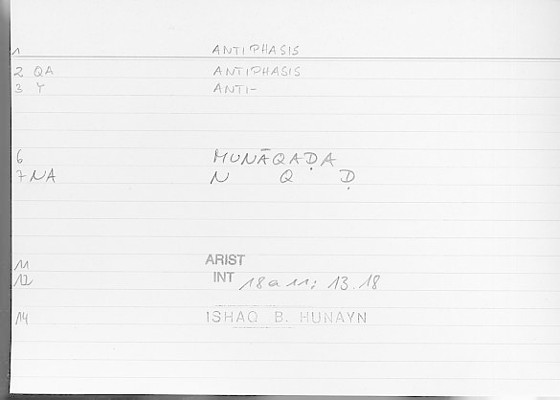 1 ANTIPHASIS
2 QA ANTIPHASIS
3 Y ANTI-
6 MUNĀQAḌA
7 NA N Q Ḍ
11 ARIST
12 INT 18a11; 13.18
14 ISHAQ B. HUNAYN